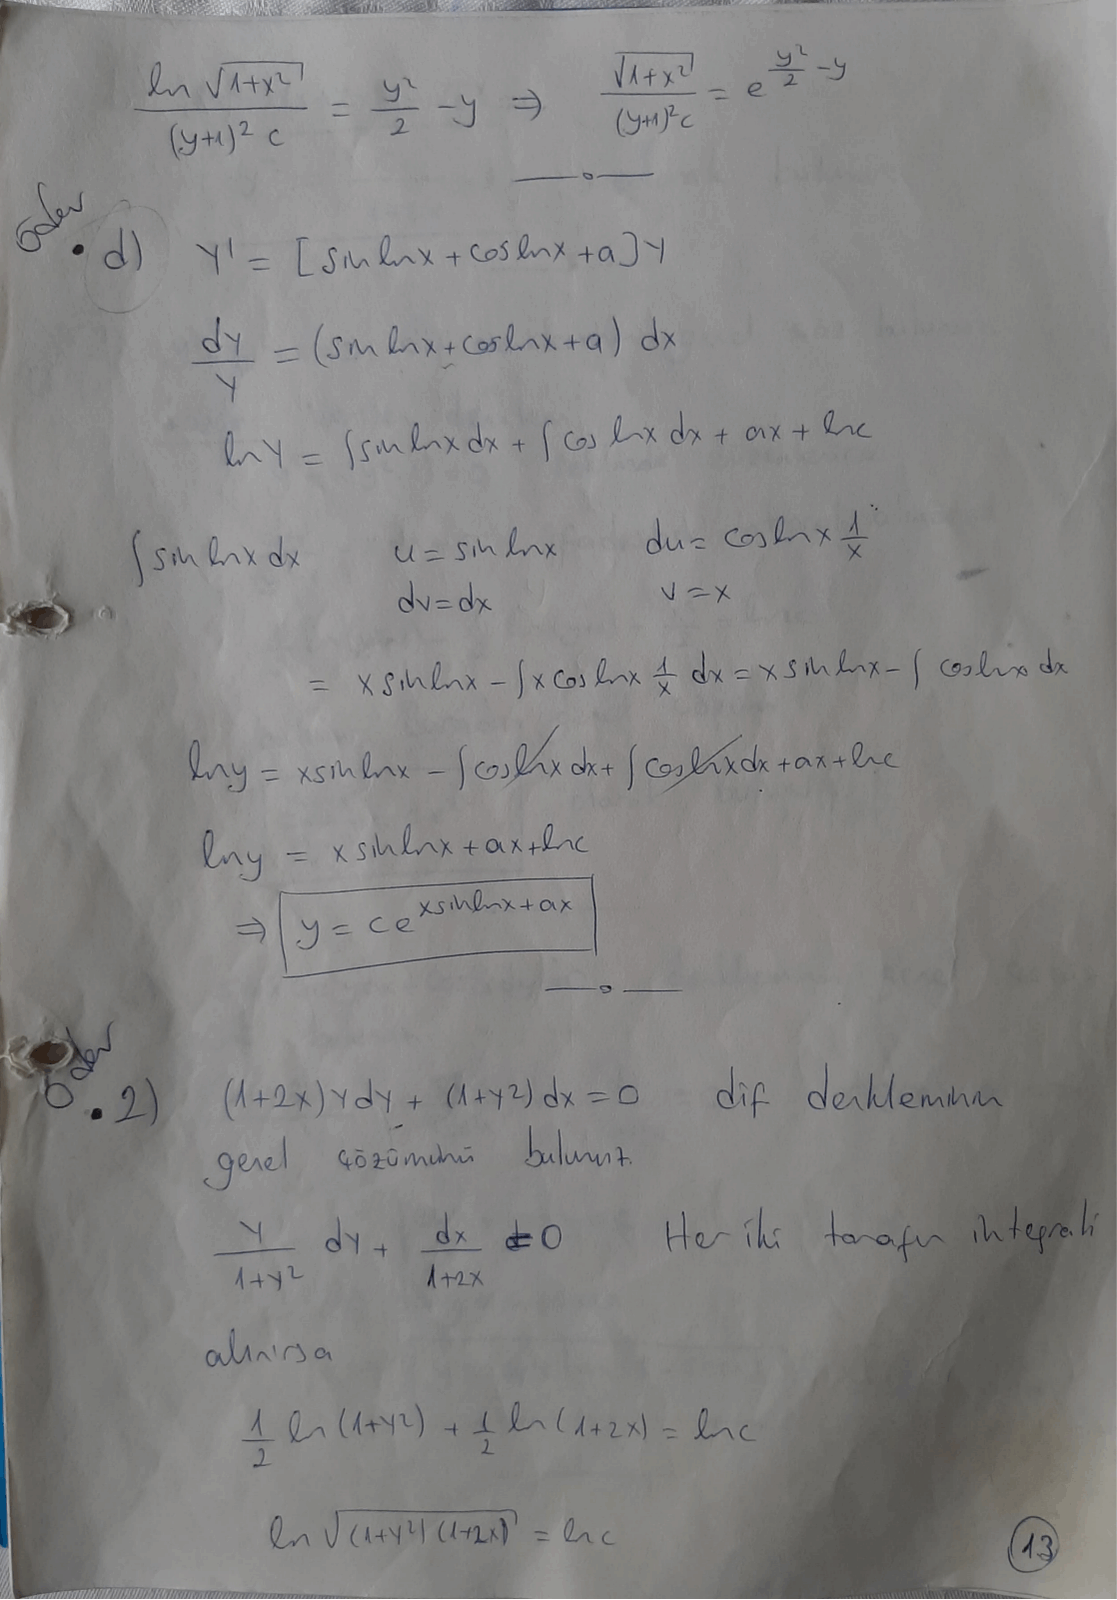 ln √(1+x²) / (y+1)² c = y²/2 - y ⇒ √(1+x²) / (y+1)² c = e^(y²/2 - y)
Ödev
• d) y' = [sin lnx + cos lnx + a] y
dy/y = (sin lnx + cos lnx + a) dx
ln y = ∫ sin lnx dx + ∫ cos lnx dx + ax + lnc
∫ sin lnx dx u = sin lnx du = cos lnx 1/x
dv = dx v = x
= x sin lnx - ∫ x cos lnx 1/x dx = x sin lnx - ∫ cos lnx dx
lny = x sin lnx - ∫ cos lnx dx + ∫ cos lnx dx + ax + lnc
lny = x sin lnx + ax + lnc
⇒ y = c e^(x sin lnx + ax)
Ödev
• 2) (1+2x) y dy + (1+y²) dx = 0 dif denkleminin
genel çözümünü bulunuz.
y/(1+y²) dy + dx/(1+2x) = 0 Her iki tarafın integrali
alınırsa
1/2 ln (1+y²) + 1/2 ln (1+2x) = lnc
ln √((1+y²)(1+2x)) = lnc
13